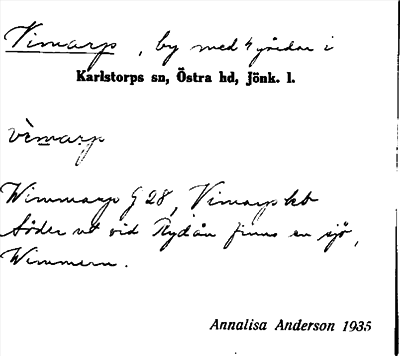 Vimarp, by med 4 gårdar i
Karlstorps sn, Östra hd, Jönk. l.
vìmarp
Wimmarp G 28, Vimarp kb
Söder ut vid Rydån finns en sjö,
Wimmern.
Annalisa Anderson 1935